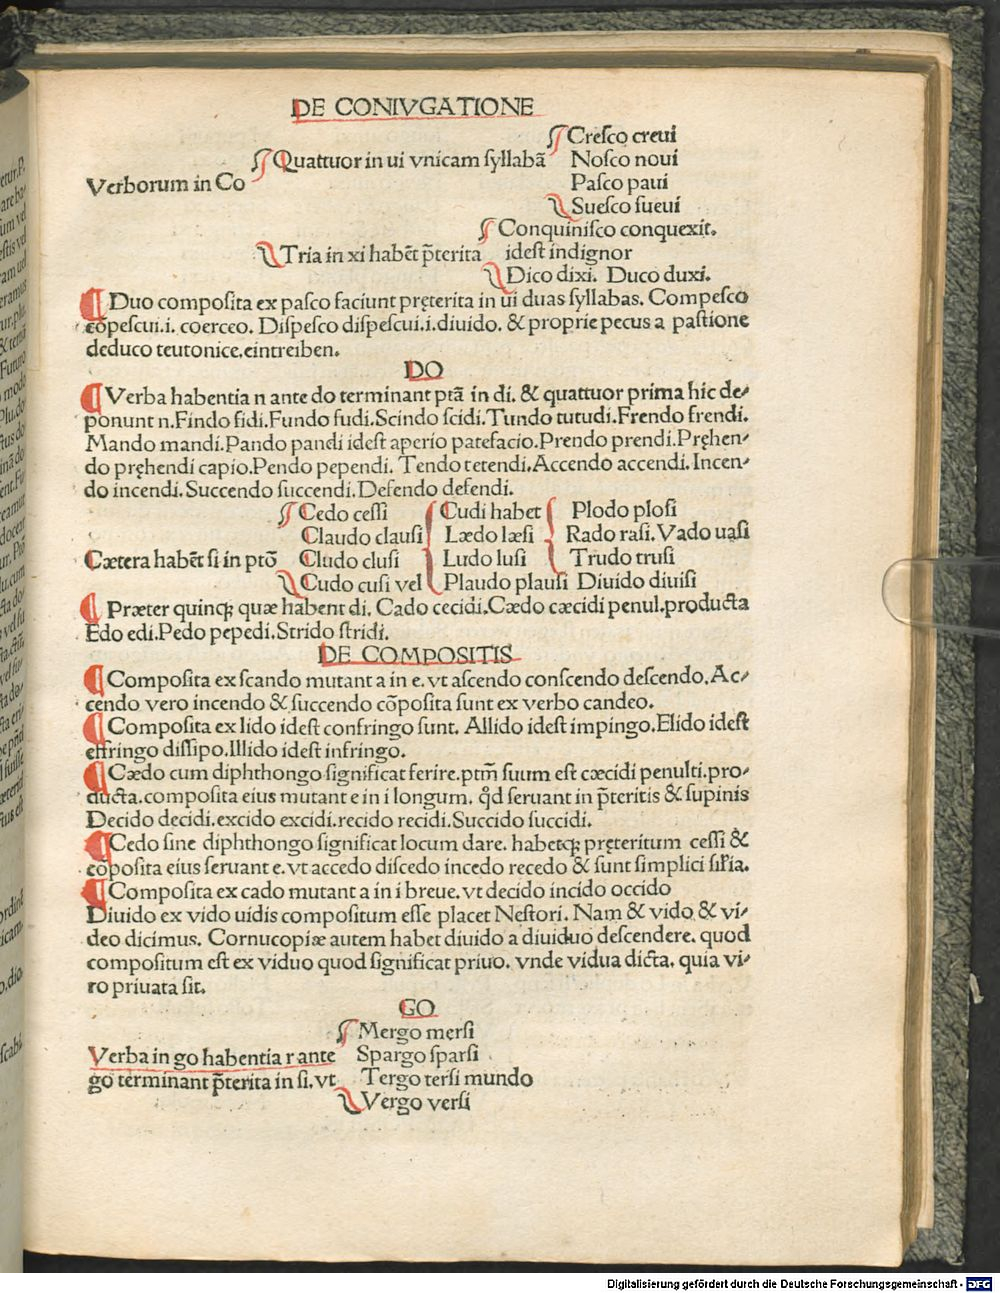 DE CONIVGATIONE
Creſco creui
Quattuor in ui vnicam ſyllabã Noſco noui
Verborum in Co Paſco paui
Sueſco ſueui
Conquiniſco conquexit.
Tria in xi habẽt p̃terita ideſt indignor
Dico dixi. Duco duxi.
¶ Duo compoſita ex paſco faciunt pręterita in ui duas ſyllabas. Compeſco
cõpeſcui.i. coerceo. Diſpeſco diſpeſcui.i.diuido. & proprie pecus a paſtione
deduco teutonice.eintreiben.
DO
¶ Verba habentia n ante do terminant ptã in di. & quattuor prima hic de⸗
ponunt n.Findo fidi.Fundo fudi.Scindo ſcidi.Tundo tutudi.Frendo frendi.
Mando mandi.Pando pandi ideſt aperio patefacio.Prendo prendi.Pręhen⸗
do pręhendi capio.Pendo pependi. Tendo tetendi.Accendo accendi.Incen⸗
do incendi.Succendo ſuccendi.Defendo defendi.
Cedo ceſſi Cudi habet Plodo ploſi
Claudo clauſi Lædo læſi Rado raſi.Vado uaſi
Cætera habẽt ſi in ptõ Cludo cluſi Ludo luſi Trudo truſi
Cudo cuſi vel Plaudo plauſi Diuido diuiſi
¶ Præter quinqꝫ quæ habent di. Cado cecidi.Cædo cæcidi penul.producta
Edo edi.Pedo pepedi.Strido ſtridi.
DE COMPOSITIS
¶ Compoſita ex ſcando mutant a in e.vt aſcendo conſcendo deſcendo.Ac⸗
cendo vero incendo & ſuccendo cõpoſita ſunt ex verbo candeo.
¶ Compoſita ex lido ideſt confringo ſunt. Allido ideſt impingo.Elido ideſt
effringo diſſipo.Illido ideſt infringo.
¶ Cædo cum diphthongo ſignificat ferire.ptm̃ ſuum eſt cæcidi penulti.pro⸗
ducta.compoſita eius mutant e in i longum. qđ ſeruant in p̃teritis & ſupinis
Decido decidi.excido excidi.recido recidi.Succido ſuccidi.
¶ Cedo ſine diphthongo ſignificat locum dare. habetqꝫ pręteritum ceſſi &
cõpoſita eius ſeruant e.vt accedo diſcedo incedo recedo & ſunt ſimplici
¶ Compoſita ex cado mutant a in i breue.vt decido incido occido
Diuido ex vido uidis compoſitum eſſe placet Neſtori. Nam & vido & vi⸗
deo dicimus. Cornucopiæ autem habet diuido a diuiduo deſcendere. quod
compoſitum eſt ex viduo quod ſignificat priuo. vnde vidua dicta. quia vi⸗
ro priuata ſit.
GO
Mergo merſi
Verba in go habentia r ante Spargo ſparſi
go terminant p̃terita in ſi.vt Tergo terſi mundo
Vergo verſi
Digitalisierung gefördert durch die Deutsche Forschungsgemeinschaft - DFG